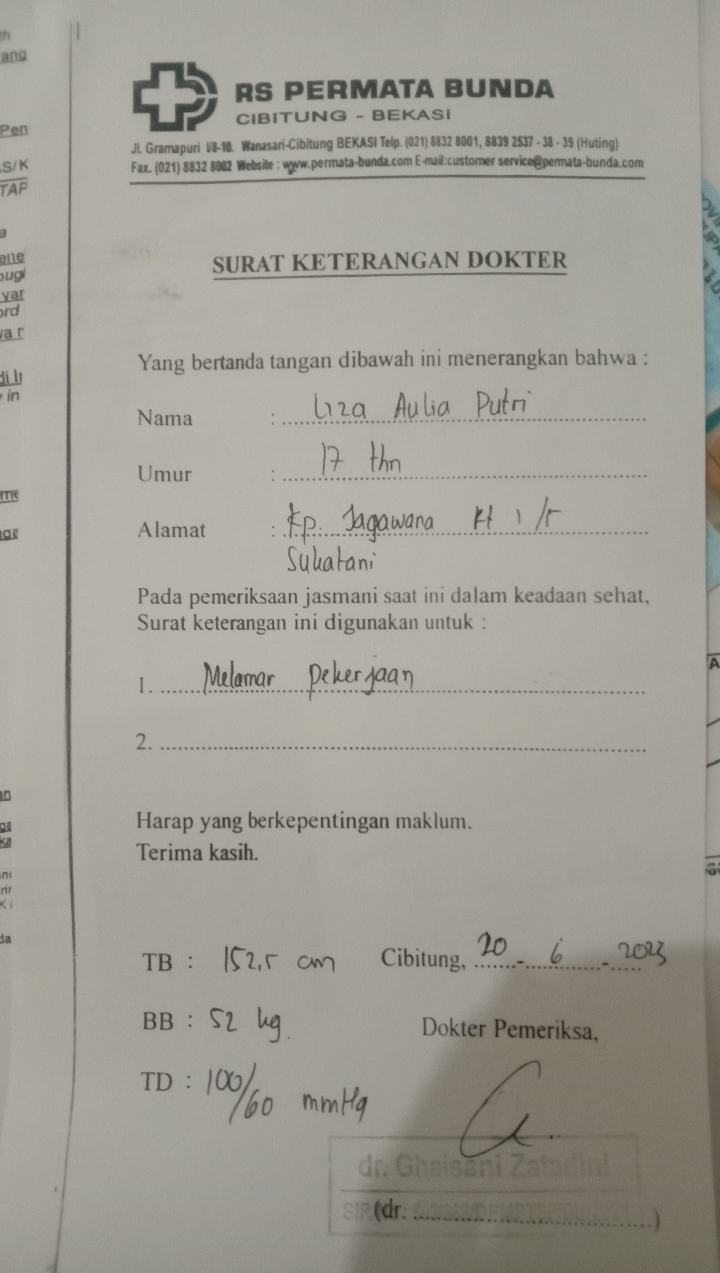 RS PERMATA BUNDA
CIBITUNG - BEKASI
Jl. Gramapuri I/8-10. Wanasari-Cibitung BEKASI Telp. (021) 8832 8001, 8839 2537 - 38 - 39 (Huting)
Fax. (021) 8832 8002 Website : www.permata-bunda.com E-mail:customer service@permata-bunda.com
SURAT KETERANGAN DOKTER
Yang bertanda tangan dibawah ini menerangkan bahwa :
Nama : Liza Aulia Putri
Umur : 17 thn
Alamat : Kp. Jagawana Rt 1/5
Sukatani
Pada pemeriksaan jasmani saat ini dalam keadaan sehat,
Surat keterangan ini digunakan untuk :
1. Melamar Pekerjaan
2.
Harap yang berkepentingan maklum.
Terima kasih.
TB : 152,5 cm Cibitung, 20 - 6 - 2023
BB : 52 kg. Dokter Pemeriksa,
TD : 100/60 mmHg
dr. Ghaisani
SIP. (dr. )